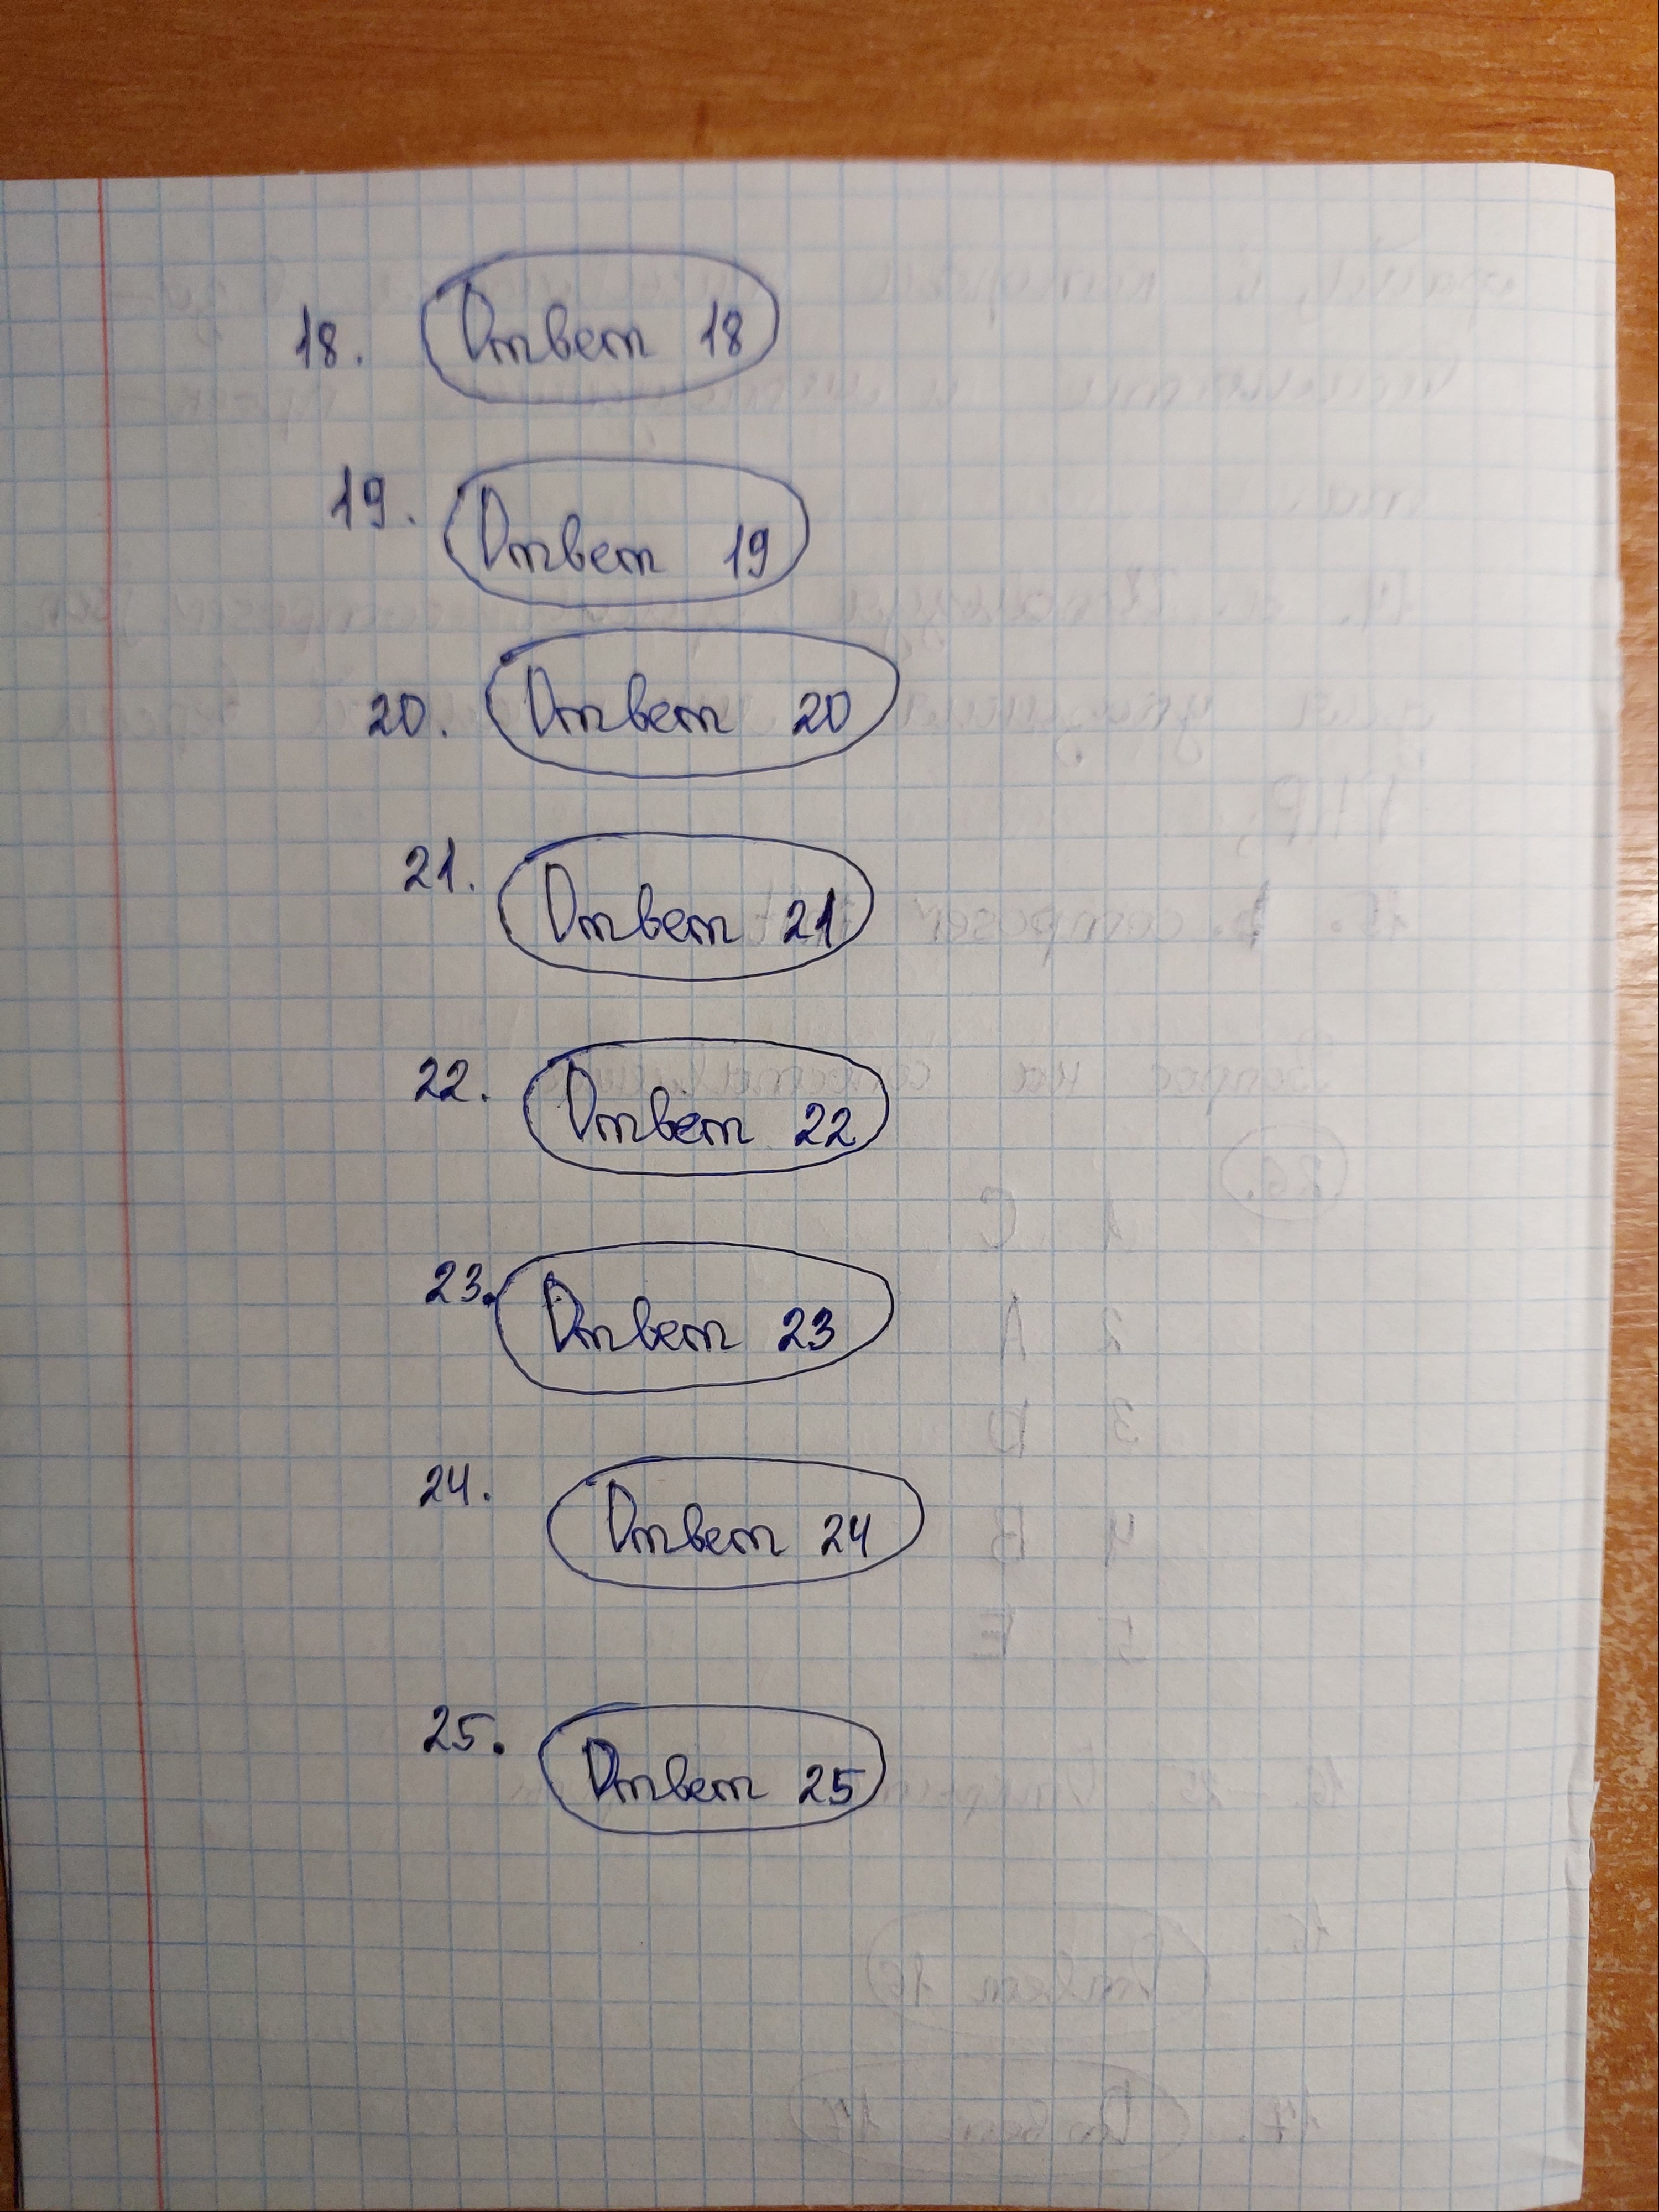 18. Ответ 18
19. Ответ 19
20. Ответ 20
21. Ответ 21
22. Ответ 22
23. Ответ 23
24. Ответ 24
25. Ответ 25